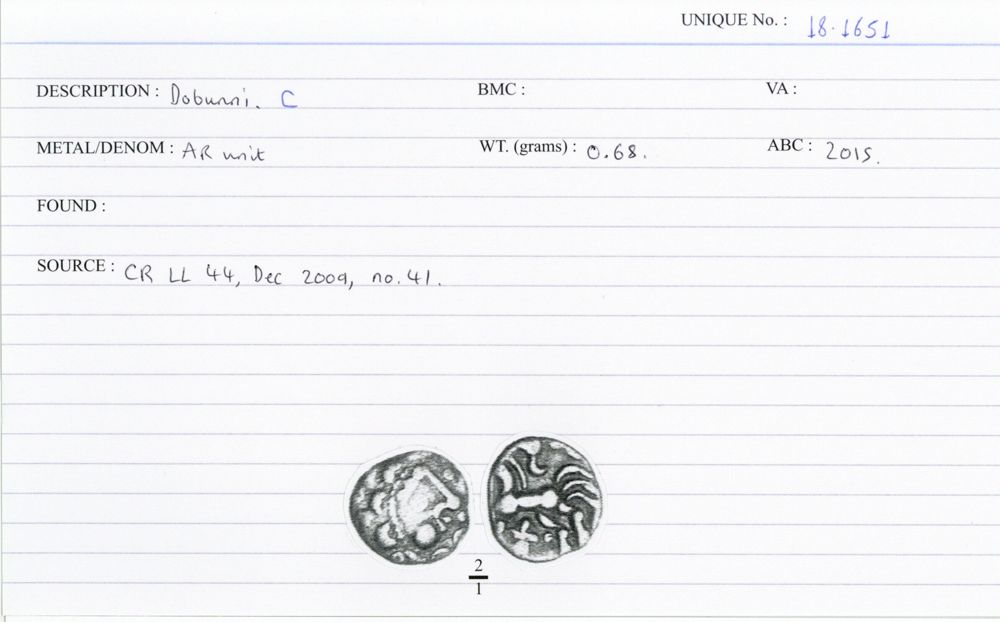 UNIQUE No. : 18.1651
DESCRIPTION : Dobunni. C BMC : VA :
METAL/DENOM : AR unit WT. (grams) : 0.68. ABC : 2015.
FOUND :
SOURCE : CR LL 44, Dec 2009, no. 41.
2
1